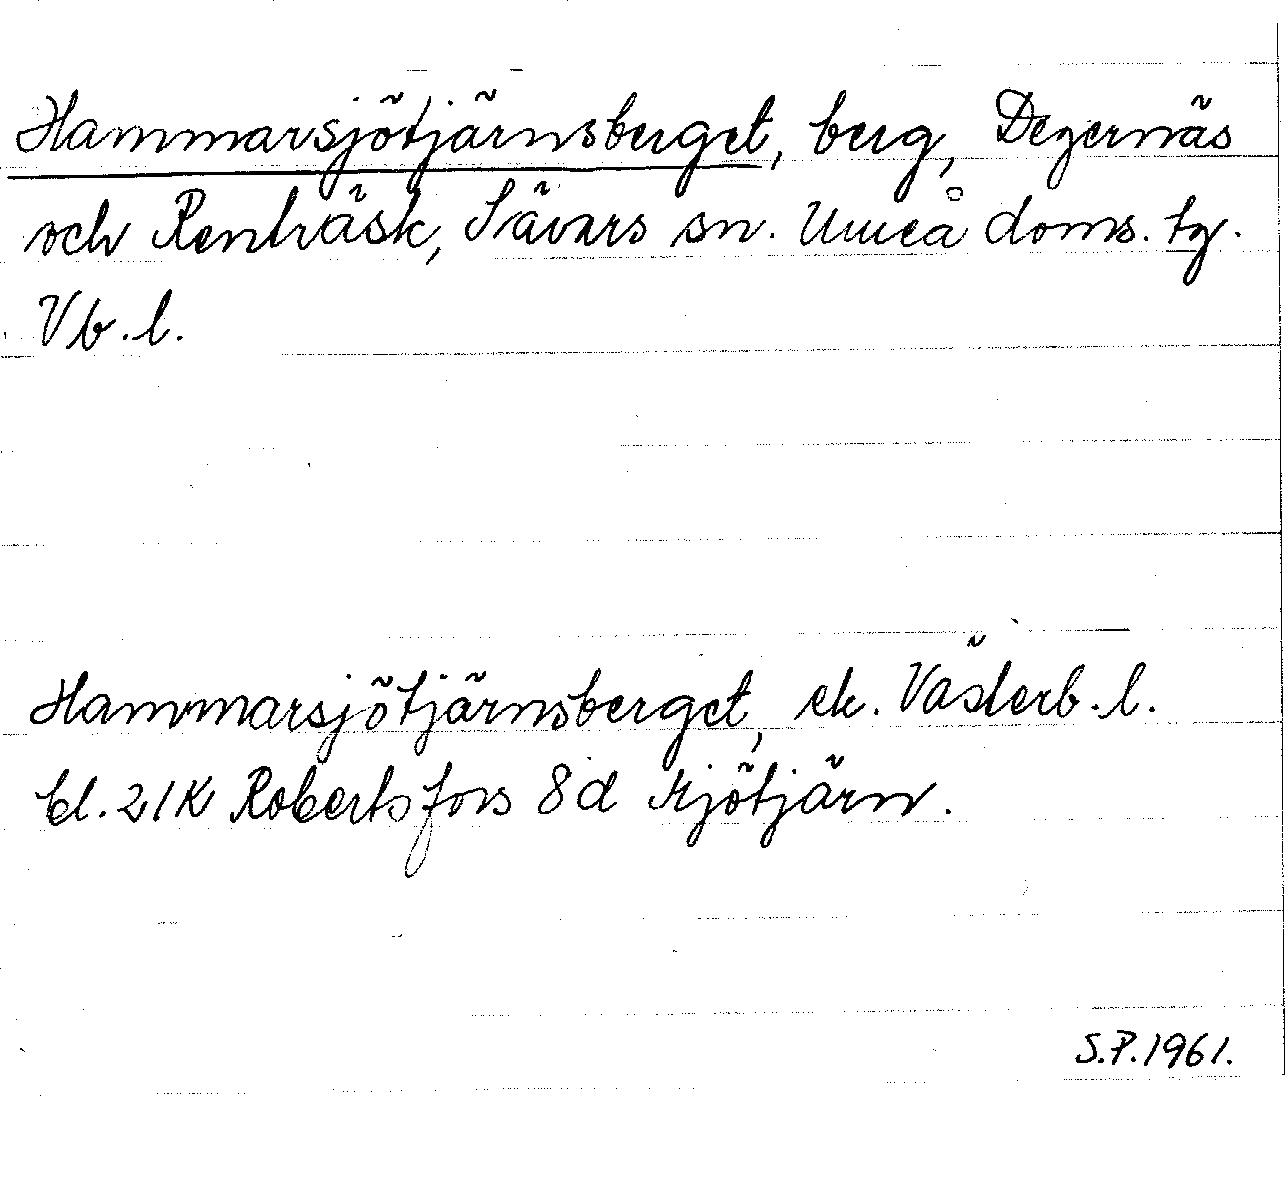 Hammarsjötjärnsberget, berg, Degernäs
och Renträsk, Sävars sn. Umeå doms. tg.
Vb. l.
Hammarsjötjärnsberget, ek. Västerb. l.
bl. 21K Robertsfors 8d Sjötjärn.
S.P. 1961.